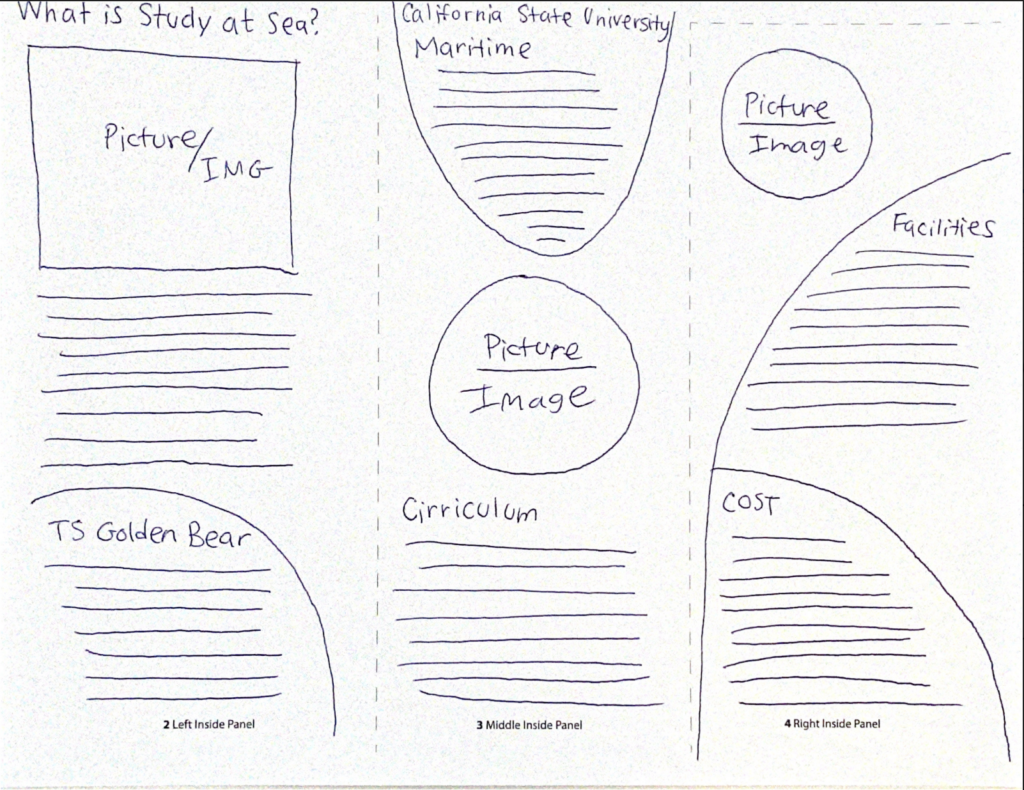 What is Study at Sea?
Picture/
IMG
TS Golden Bear
2 Left Inside Panel
California State University
Maritime
Picture
Image
Cirriculum
3 Middle Inside Panel
Picture
Image
Facilities
COST
4 Right Inside Panel